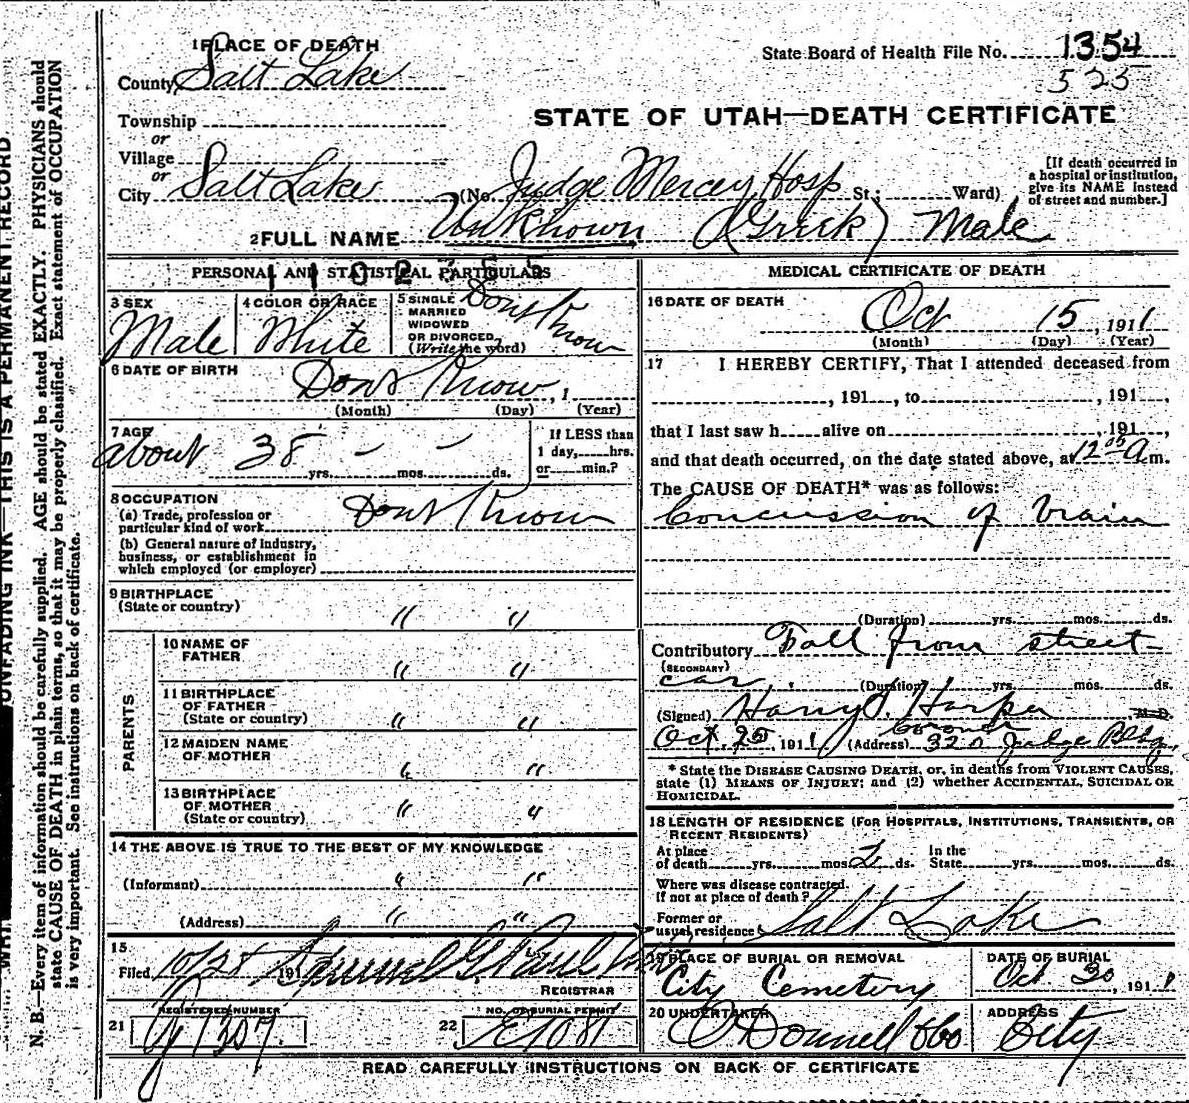 1 PLACE OF DEATH
County Salt Lake
State Board of Health File No. 1354
525
STATE OF UTAH—DEATH CERTIFICATE
Township
or
Village
or
City Salt Lake (No. Judge Mercey Hosp St.; Ward)
[If death occurred in a hospital or institution, give its NAME instead of street and number.]
2 FULL NAME Unknown (Greek) Male
PERSONAL AND STATISTICAL PARTICULARS
3 SEX
Male
4 COLOR OR RACE
White
5 SINGLE
MARRIED
WIDOWED
OR DIVORCED
(Write the word)
Dont Know
6 DATE OF BIRTH
Dont Know, 1
(Month) (Day) (Year)
7 AGE
about 38 yrs. — mos. — ds.
If LESS than
1 day, hrs.
or min.?
8 OCCUPATION
(a) Trade, profession or
particular kind of work Dont Know
(b) General nature of Industry,
business, or establishment in
which employed (or employer)
9 BIRTHPLACE
(State or country) " "
PARENTS
10 NAME OF
FATHER " "
11 BIRTHPLACE
OF FATHER
(State or country) " "
12 MAIDEN NAME
OF MOTHER " "
13 BIRTHPLACE
OF MOTHER
(State or country) " "
14 THE ABOVE IS TRUE TO THE BEST OF MY KNOWLEDGE
(Informant) " "
(Address) " "
15
Filed 10/25 191 Samuel G. Paul
REGISTRAR
REGISTERED NUMBER
21
NO. OF BURIAL PERMIT
22 E1081
MEDICAL CERTIFICATE OF DEATH
16 DATE OF DEATH
Oct 15, 1911
(Month) (Day) (Year)
17 I HEREBY CERTIFY, That I attended deceased from
, 191 , to , 191 ,
that I last saw h alive on , 191 ,
and that death occurred, on the date stated above, at 12 05 A m.
The CAUSE OF DEATH* was as follows:
Concussion of brain
(Duration) yrs. mos. ds.
Contributory Fall from street
(SECONDARY)
car, (Duration) yrs. mos. ds.
(Signed) Harry S. Harper M.D.
Coroner
Oct. 25, 1911 (Address) 320 Judge Bldg.
* State the DISEASE CAUSING DEATH, or, in deaths from VIOLENT CAUSES,
state (1) MEANS OF INJURY; and (2) whether ACCIDENTAL, SUICIDAL OR
HOMICIDAL.
18 LENGTH OF RESIDENCE (FOR HOSPITALS, INSTITUTIONS, TRANSIENTS, OR
RECENT RESIDENTS)
At place In the
of death yrs. mos. 2 ds. State yrs. mos. ds.
Where was disease contracted,
If not at place of death?
Former or
usual residence Salt Lake
19 PLACE OF BURIAL OR REMOVAL
City Cemetery
DATE OF BURIAL
Oct 30, 1911
20 UNDERTAKER
O'Donnell & Co
ADDRESS
City
READ CAREFULLY INSTRUCTIONS ON BACK OF CERTIFICATE
UNFADING INK—THIS IS A PERMANENT RECORD
N. B.—Every item of information should be carefully supplied. AGE should be stated EXACTLY. PHYSICIANS should
state CAUSE OF DEATH in plain terms, so that it may be properly classified. Exact statement of OCCUPATION
is very important. See instructions on back of certificate.